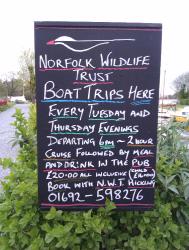 NORFOLK WILDLIFE
TRUST
BOAT TRIPS HERE
EVERY TUESDAY AND
THURSDAY EVENINGS
DEPARTING 6PM ~ 2 HOUR
CRUISE FOLLOWED BY MEAL
AND DRINK IN THE PUB
£20:00 ALL INCLUSIVE
BOOK WITH N.W.T HICKLING
01692-598276